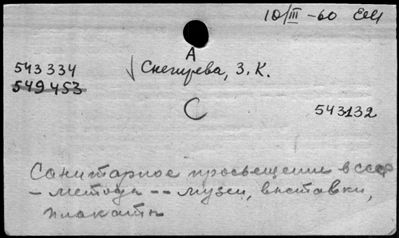 10/III-60 ЕМ
А
543334
Снегирева, З. К.
549453
С
543132
Санитарное просвещение в СССР
- методы -- музеи, выставки,
плакаты